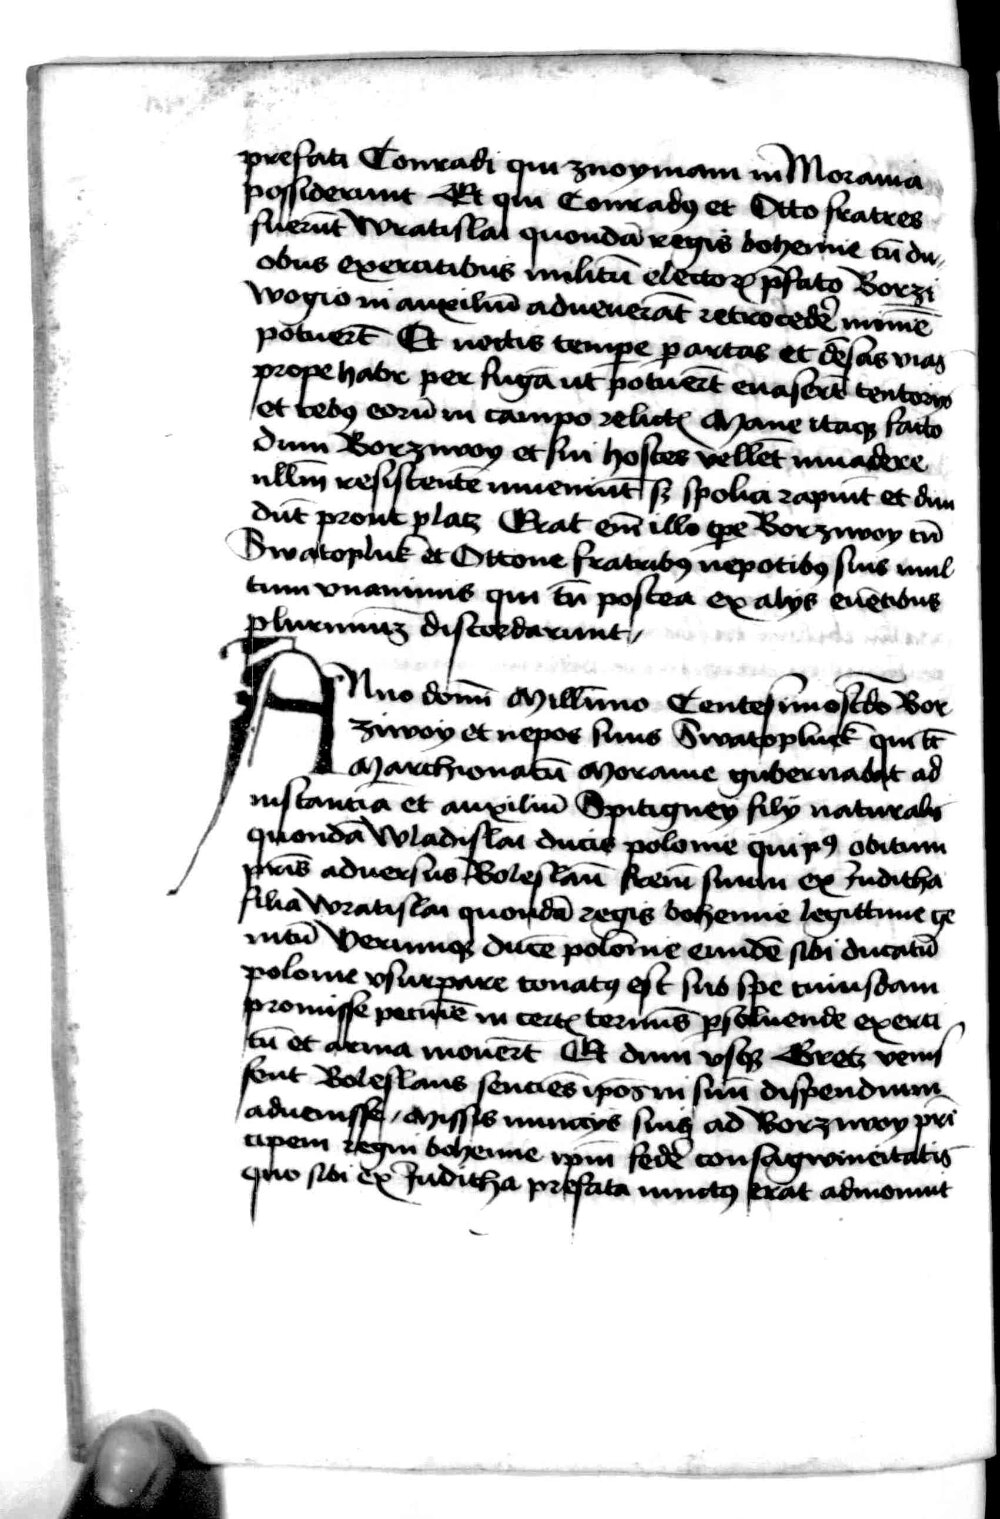 prefati Conradi qui znoymam in Morauia
possiderunt Et qui Conradꝰ et Otto fratres
fuerūt Wratislai quondā regis bohemie cū du⸗
obus exercitibus militū electorꝝ p̄fato Borzi
wogio in auxiliū aduenerāt retrocedē̄ minīe
potuerūt Et noctis tempe p artas et dēsas vias
prope habr per fugā ut potuerūt euaserūt tentorijs
et rebꝰ eorū in campo relict̄ Mane itaqꝫ facto
dum Borziwoy et sui hostes vellēt inuadere
nullū resistentē inueniūt sꝫ spolia rapiūt et diui
dūt prout placꝫ Erat em̄ illo tp̄e Borziwoy cū
Swatopluk et Ottone fratribꝰ nepotibꝰ suis mul
tum vnanimis qui tn̄ postea ex alijs euētibus
plurimūꝫ discordarunt⸗
Anno domī Millīmo Centesimosc̄do Bor
ziwoy et nepos suus Swatopluk qui tc̄
Marchionatū Morauie gubernabat ad
instantiā et auxiliū Spitigney filij naturalis
quondā Wladislai ducis polonie qui pꝰ obitum
pr̄is aduersus Boleslaū fr̄em suum ex Juditha
filia Wratislai quondā regis bohemie legittime ge
nitū verumqꝫ ducē polonie eundē sibi ducatū
polonie vsurpare conatꝰ est sub spe cuiusdam
promisse pecunie in cert̄ terminis psoluende exerci
tū et arma mouerūt Et dum vsqꝫ Gretz venis
sent Boleslaus senciēs ipos in suū dispendium
aduenisse / Missis nuncijs suis ad Borziwoy prī
cipem regni bohemie ipm̄ federe consagwineitatis
quo sibi ex Juditha prefata iunctꝰ erat admonuit